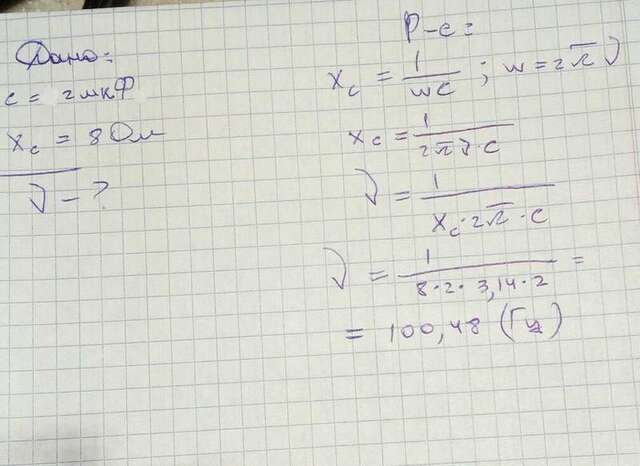 Дано:
c = 2 мкФ
Xc = 8 Ом
ν - ?
Р-е:
Xc = 1/wc ; w = 2πν
Xc = 1/2πν·c
ν = 1/Xc·2π·c
ν = 1/8·2·3,14·2 =
= 100,48 (Гц)